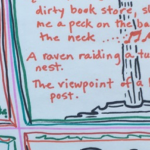 dirty book store, s
me a peck on the ba
the neck ....
A raven raiding a tu
nest.
The viewpoint of a
post.